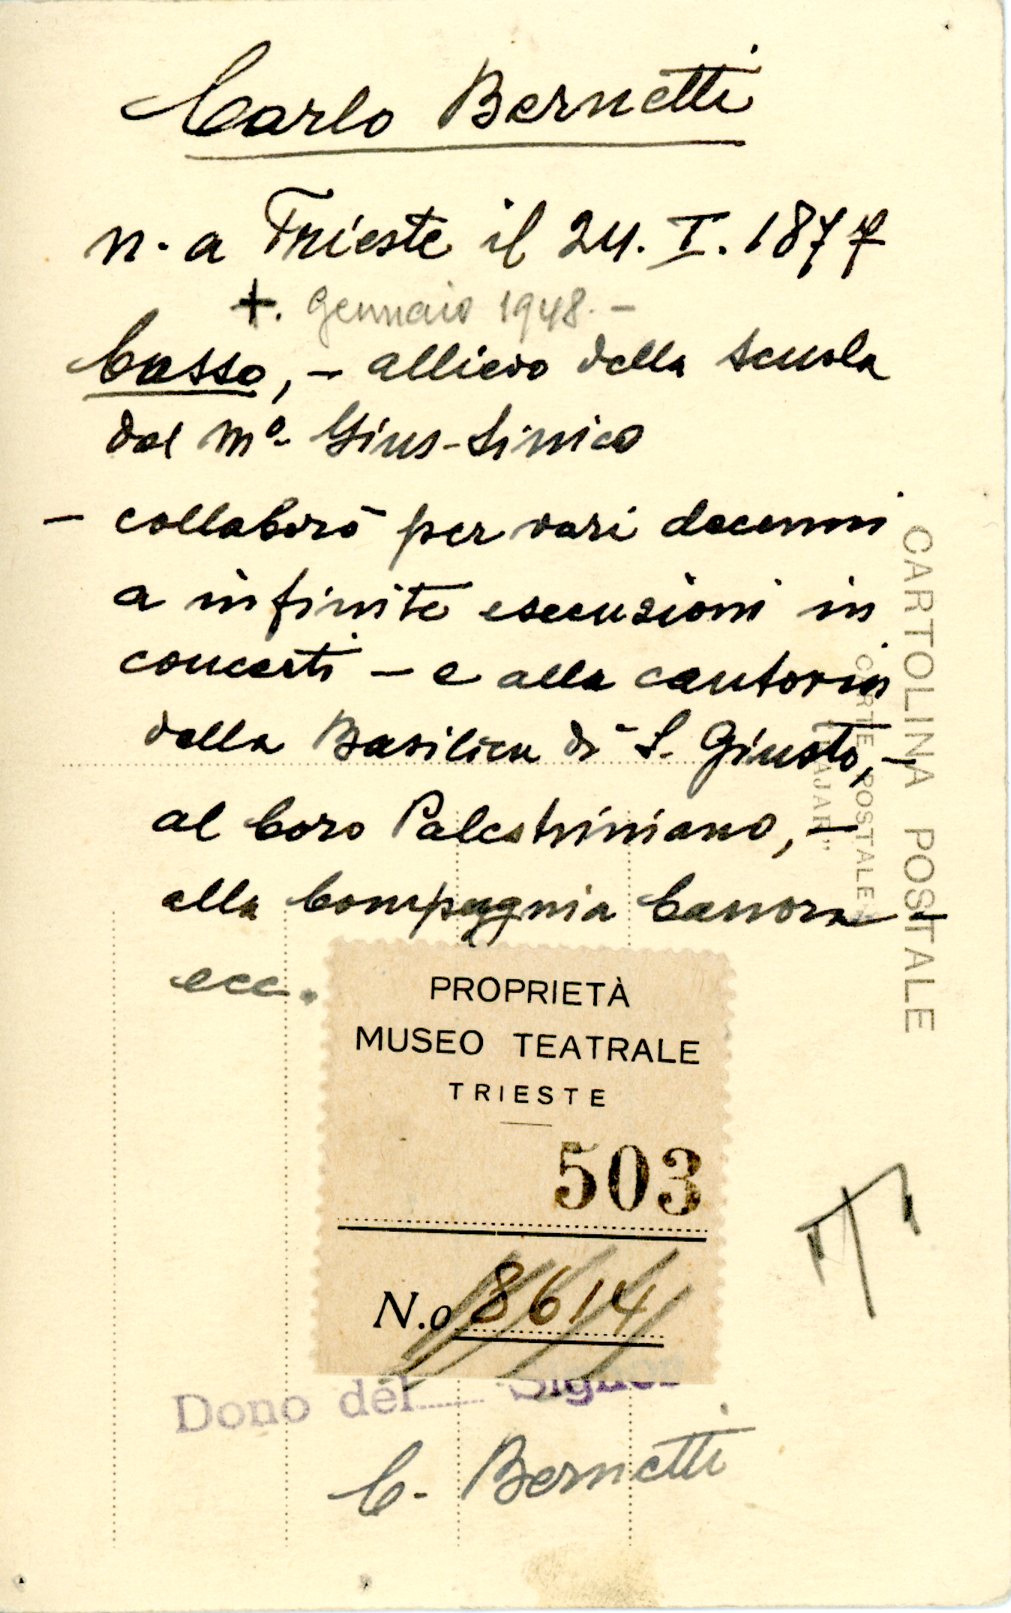 Carlo Bernetti
n. a Trieste il 24. I. 1877
+. Gennaio 1948. –
basso, – allievo della scuola
del mº. Gius. Sinico
– collaborò per vari decenni
a infinite esecuzioni in
concerti – e alla cantoria
della Basilica di S. Giusto, –
al Coro Palestriniano, –
alla Compagnia Canora –
ecc.
CARTOLINA POSTALE
CARTE POSTALE
PROPRIETÀ
MUSEO TEATRALE
TRIESTE
503
N.o 8614
Dono del Signor
C. Bernetti